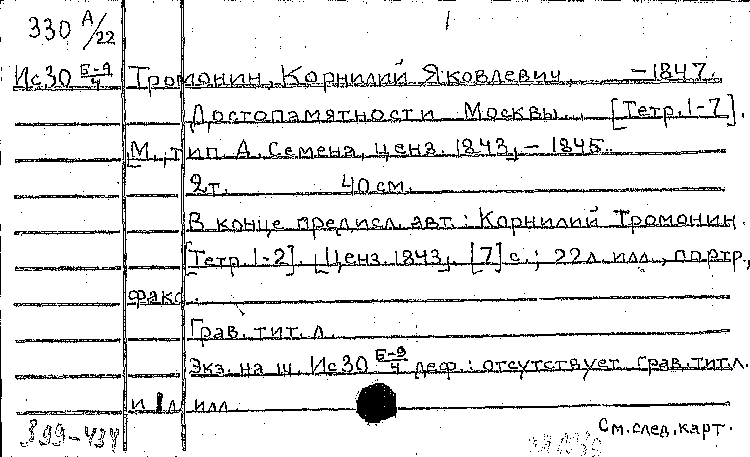 330 А/22
1
Ис30 Б-9/4 Тромонин, Корнилий Яковлевич, -1847.
Достопамятности Москвы. [Тетр.1-7].
М., тип. А. Семена, ценз. 1843, - 1845.
2т. 40см.
В конце предисл. авт.: Корнилий Тромонин.
[Тетр.1-2]. [Ценз. 1843]. [7] с.; 22л. илл., портр.,
факс.
Грав. тит. л.
Экз. на ш. Ис30 Б-9/4 деф.: отсутствует грав. тит.л.
и 1 л. илл.
399-434
См. след. карт.